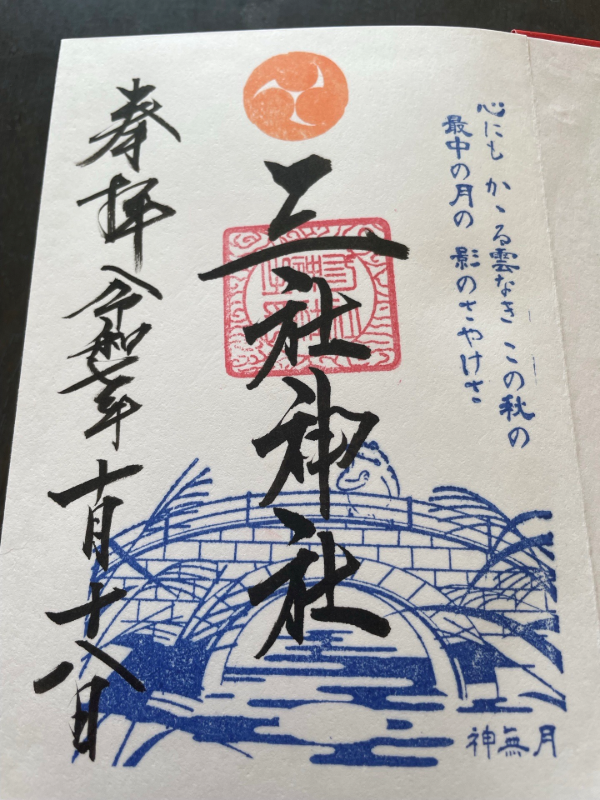 心にも かゝる雲なき この秋の
最中の月の 影のさやけさ
三社神社
奉拝 令和七年 十月十八日
神無月